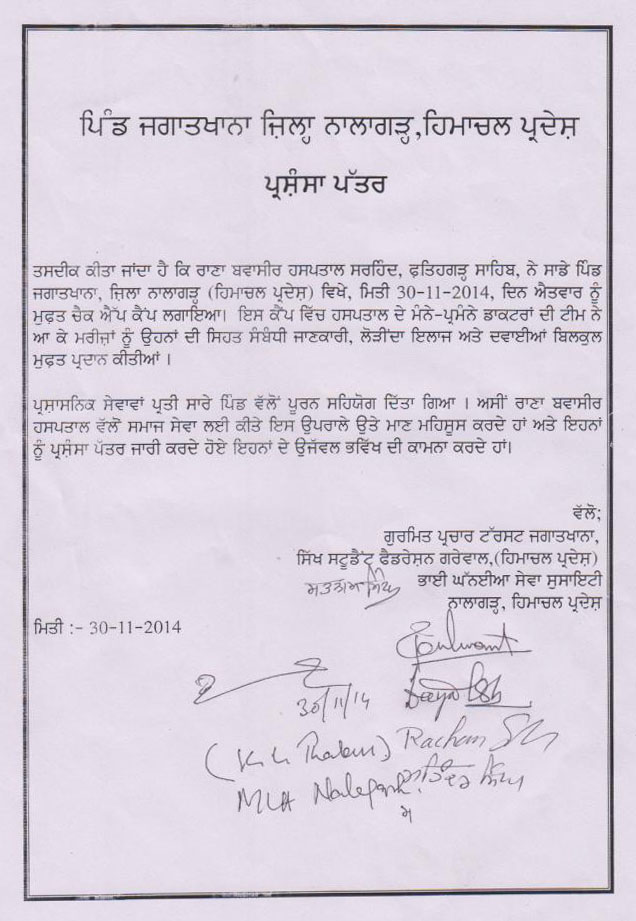 ਪਿੰਡ ਜਗਾਤਖਾਨਾ ਜ਼ਿਲ੍ਹਾ ਨਾਲਾਗੜ੍ਹ,ਹਿਮਾਚਲ ਪ੍ਰਦੇਸ਼
ਪ੍ਰਸ਼ੰਸਾ ਪੱਤਰ
ਤਸਦੀਕ ਕੀਤਾ ਜਾਂਦਾ ਹੈ ਕਿ ਰਾਣਾ ਬਵਾਸੀਰ ਹਸਪਤਾਲ ਸਰਹਿੰਦ, ਫ਼ਤਿਹਗੜ੍ਹ ਸਾਹਿਬ, ਨੇ ਸਾਡੇ ਪਿੰਡ
ਜਗਾਤਖਾਨਾ, ਜ਼ਿਲਾ ਨਾਲਾਗੜ੍ਹ (ਹਿਮਾਚਲ ਪ੍ਰਦੇਸ਼) ਵਿਖੇ, ਮਿਤੀ 30-11-2014, ਦਿਨ ਐਤਵਾਰ ਨੂੰ
ਮੁਫ਼ਤ ਚੈਕ ਐੱਪ ਕੈਂਪ ਲਗਾਇਆ। ਇਸ ਕੈਂਪ ਵਿੱਚ ਹਸਪਤਾਲ ਦੇ ਮੰਨੇ-ਪ੍ਰਮੰਨੇ ਡਾਕਟਰਾਂ ਦੀ ਟੀਮ ਨੇ
ਆ ਕੇ ਮਰੀਜ਼ਾਂ ਨੂੰ ਉਹਨਾਂ ਦੀ ਸਿਹਤ ਸੰਬੰਧੀ ਜਾਣਕਾਰੀ, ਲੋੜੀਂਦਾ ਇਲਾਜ ਅਤੇ ਦਵਾਈਆਂ ਬਿਲਕੁਲ
ਮੁਫ਼ਤ ਪ੍ਰਦਾਨ ਕੀਤੀਆਂ ।
ਪ੍ਰਸ਼ਾਸਨਿਕ ਸੇਵਾਵਾਂ ਪ੍ਰਤੀ ਸਾਰੇ ਪਿੰਡ ਵੱਲੋਂ ਪੂਰਨ ਸਹਿਯੋਗ ਦਿੱਤਾ ਗਿਆ । ਅਸੀਂ ਰਾਣਾ ਬਵਾਸੀਰ
ਹਸਪਤਾਲ ਵੱਲੋਂ ਸਮਾਜ ਸੇਵਾ ਲਈ ਕੀਤੇ ਇਸ ਉਪਰਾਲੇ ਉਤੇ ਮਾਣ ਮਹਿਸੂਸ ਕਰਦੇ ਹਾਂ ਅਤੇ ਇਹਨਾਂ
ਨੂੰ ਪ੍ਰਸ਼ੰਸਾ ਪੱਤਰ ਜਾਰੀ ਕਰਦੇ ਹੋਏ ਇਹਨਾਂ ਦੇ ਉਜੱਵਲ ਭਵਿੱਖ ਦੀ ਕਾਮਨਾ ਕਰਦੇ ਹਾਂ।
ਵੱਲੋ;
ਗੁਰਮਿਤ ਪ੍ਰਚਾਰ ਟੱਰਸਟ ਜਗਾਤਖਾਨਾ,
ਸਿੱਖ ਸਟੂਡੈਂਟ ਫੈਡਰੇਸ਼ਨ ਗਰੇਵਾਲ,(ਹਿਮਾਚਲ ਪ੍ਰਦੇਸ਼)
ਭਾਈ ਘੱਨਈਆ ਸੇਵਾ ਸੁਸਾਇਟੀ
ਨਾਲਾਗੜ੍ਹ, ਹਿਮਾਚਲ ਪ੍ਰਦੇਸ਼
ਮਿਤੀ :- 30-11-2014
30/11/14
MLA